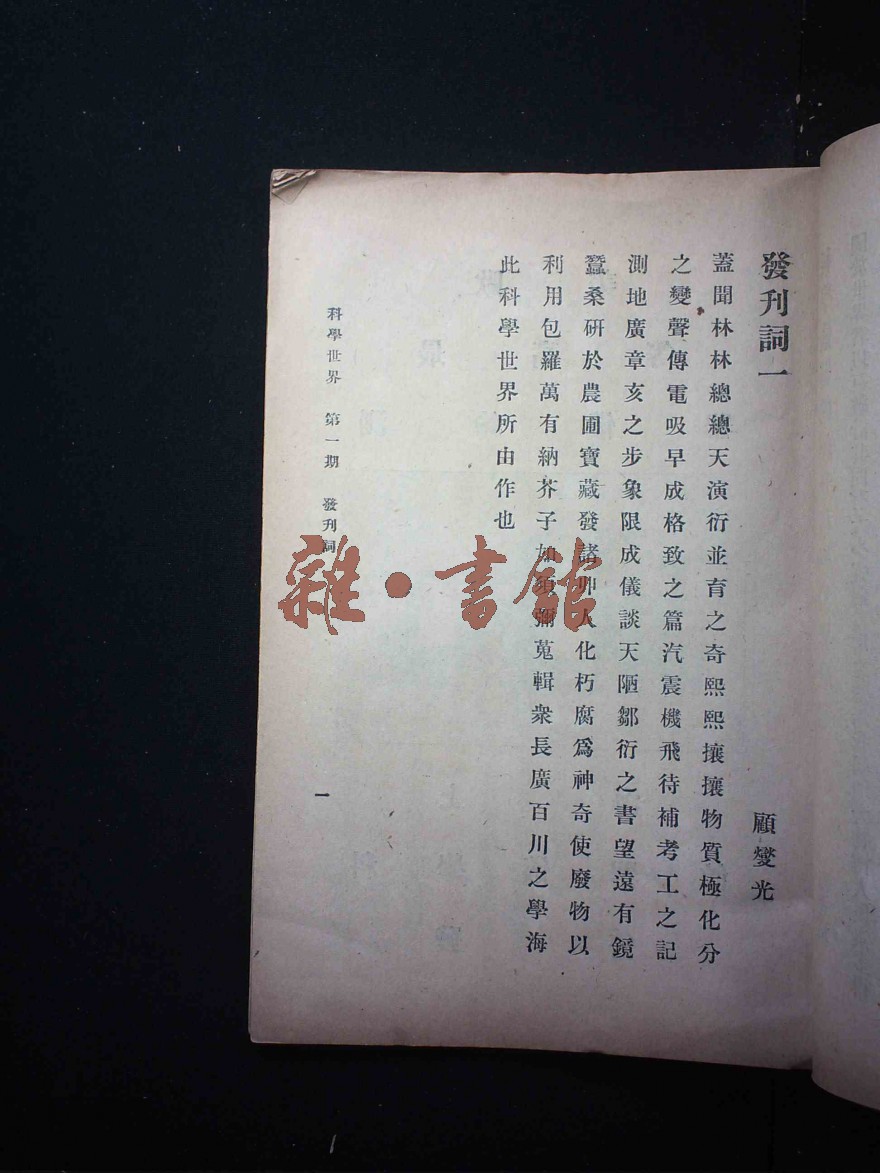 發刊詞一
顧燮光
蓋聞林林總總天演衍並育之奇熙熙攘攘物質極化分
之變聲傳電吸早成格致之篇汽震機飛待補考工之記
測地廣章亥之步象限成儀談天陋鄒衍之書望遠有鏡
蠶桑研於農圃寶藏發諸丱人化朽腐爲神奇使廢物以
利用包羅萬有納芥子如須彌蒐輯衆長廣百川之學海
此科學世界所由作也
科學世界 第一期 發刊詞
一
雜·書館